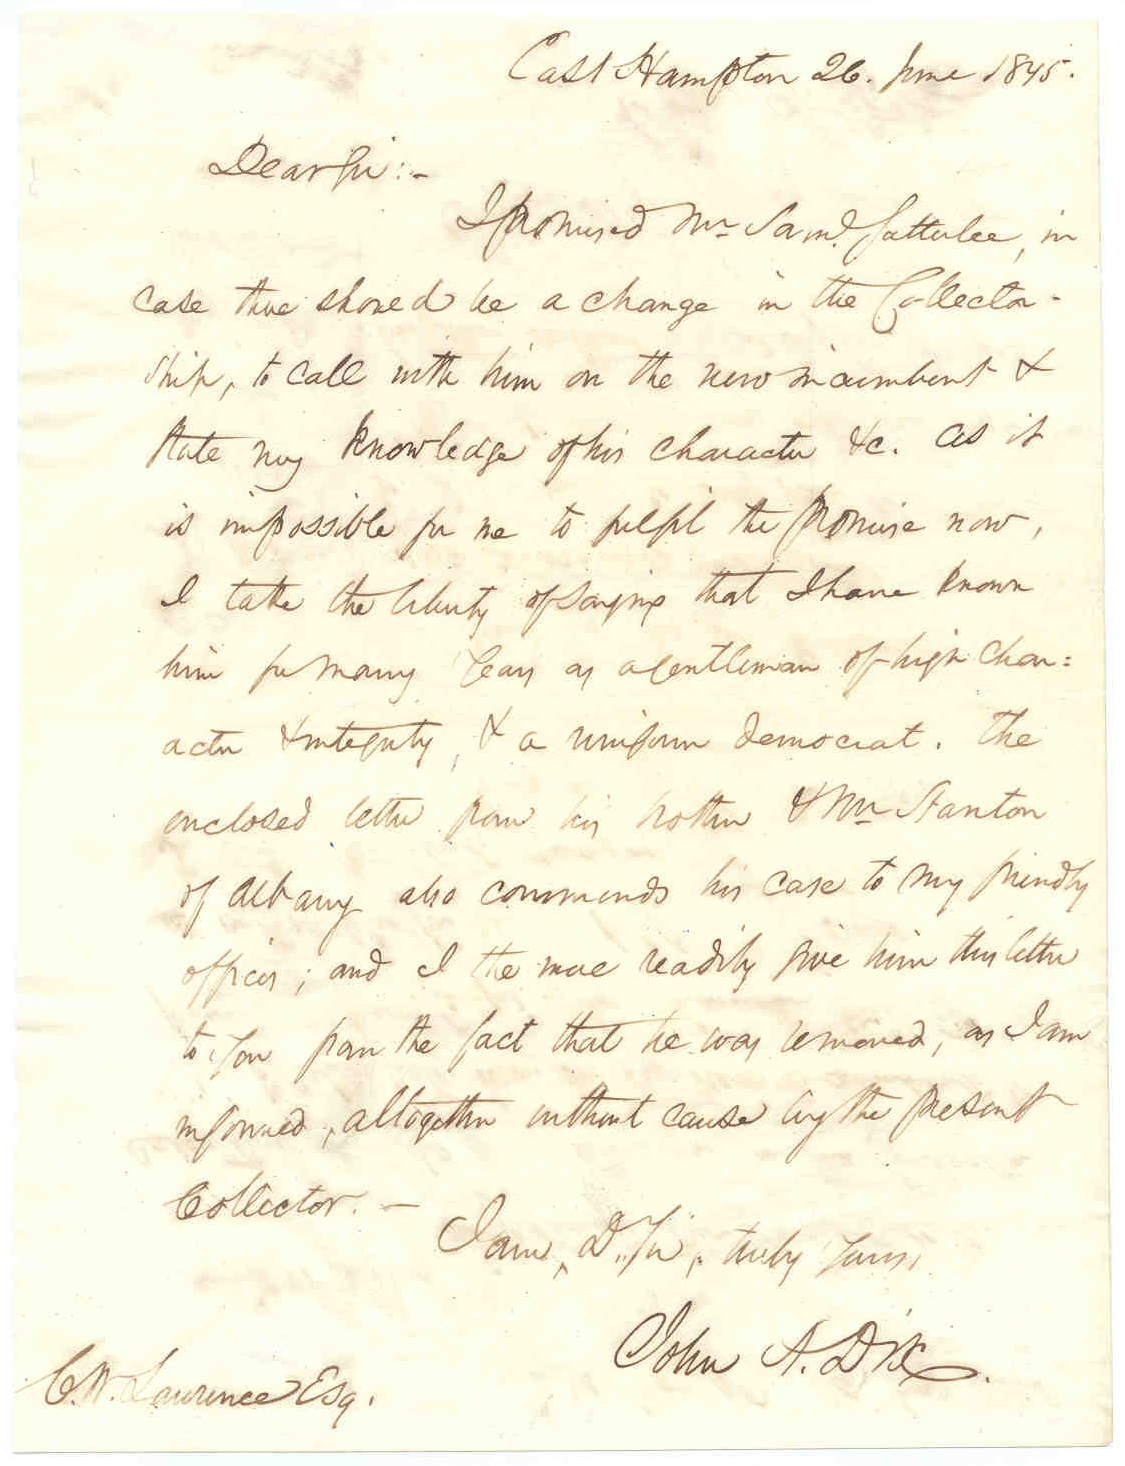 East Hampton 26. June 1845.
Dear Sir:-
I promised Mr Saml. Satterlee, in
case there should be a change in the Collector-
ship, to call with him on the new incumbent &
state my knowledge of his character &c. As it
is impossible for me to fulfil the promise now,
I take the liberty of saying that I have known
him for many years as a gentleman of high char=
acter & integrity, & a uniform democrat. The
enclosed letter from his brother & Mr Stanton
of Albany also commends his case to my friendly
offices; and I the more readily give him this letter
to you from the fact that he was removed, as I am
informed, altogether without cause by the present
Collector. —
I am, D. Sir, truly yours,
John A. Dix.
C. W. Lawrence Esq.